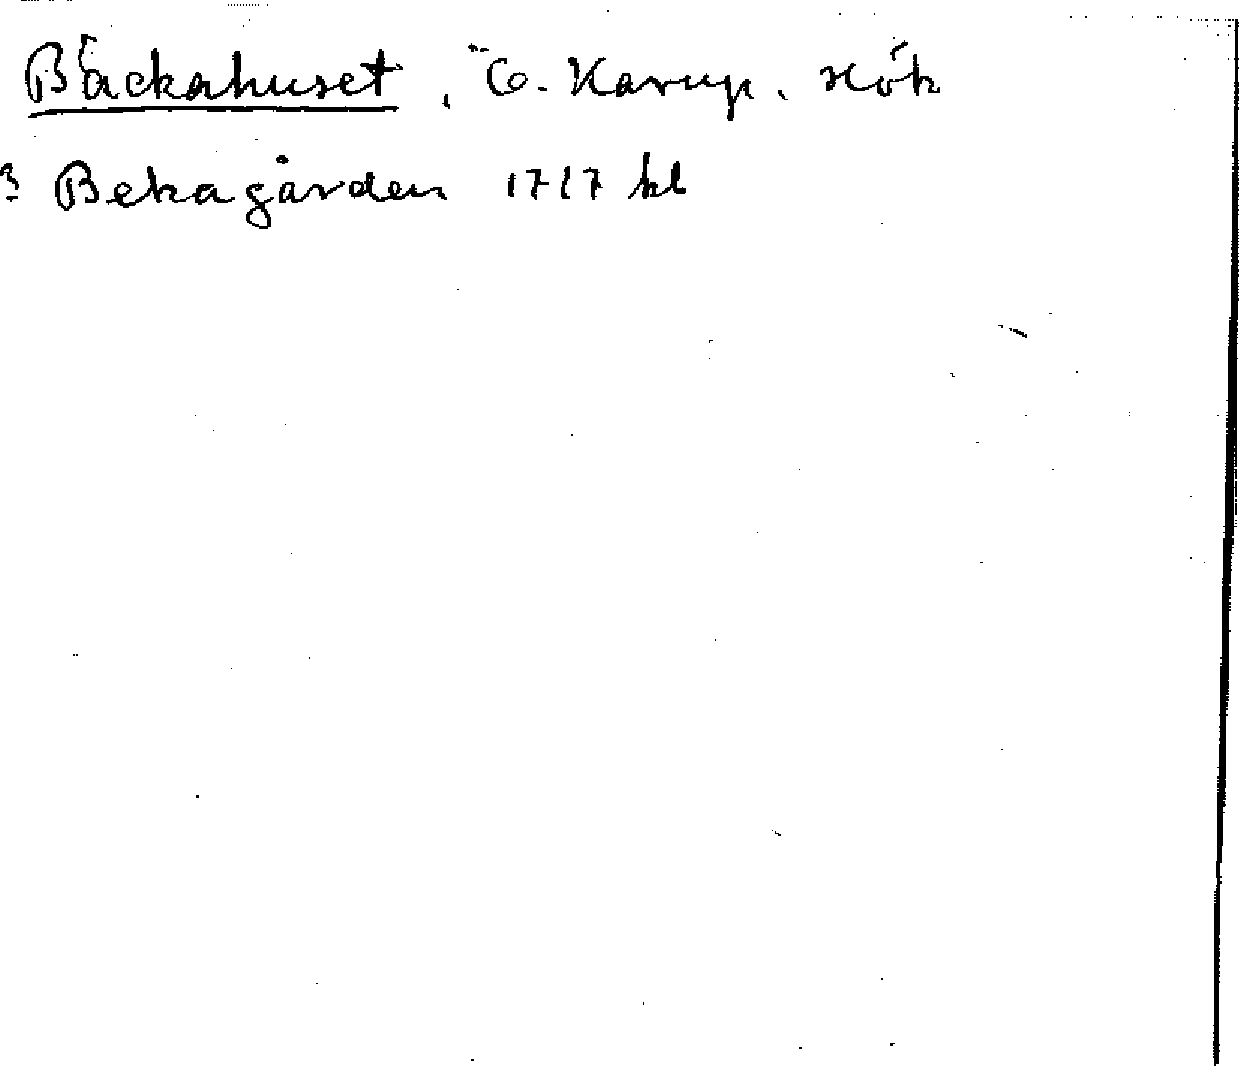 Bäckahuset, Ö. Karup, Hök
? Bekagården 1717 kl